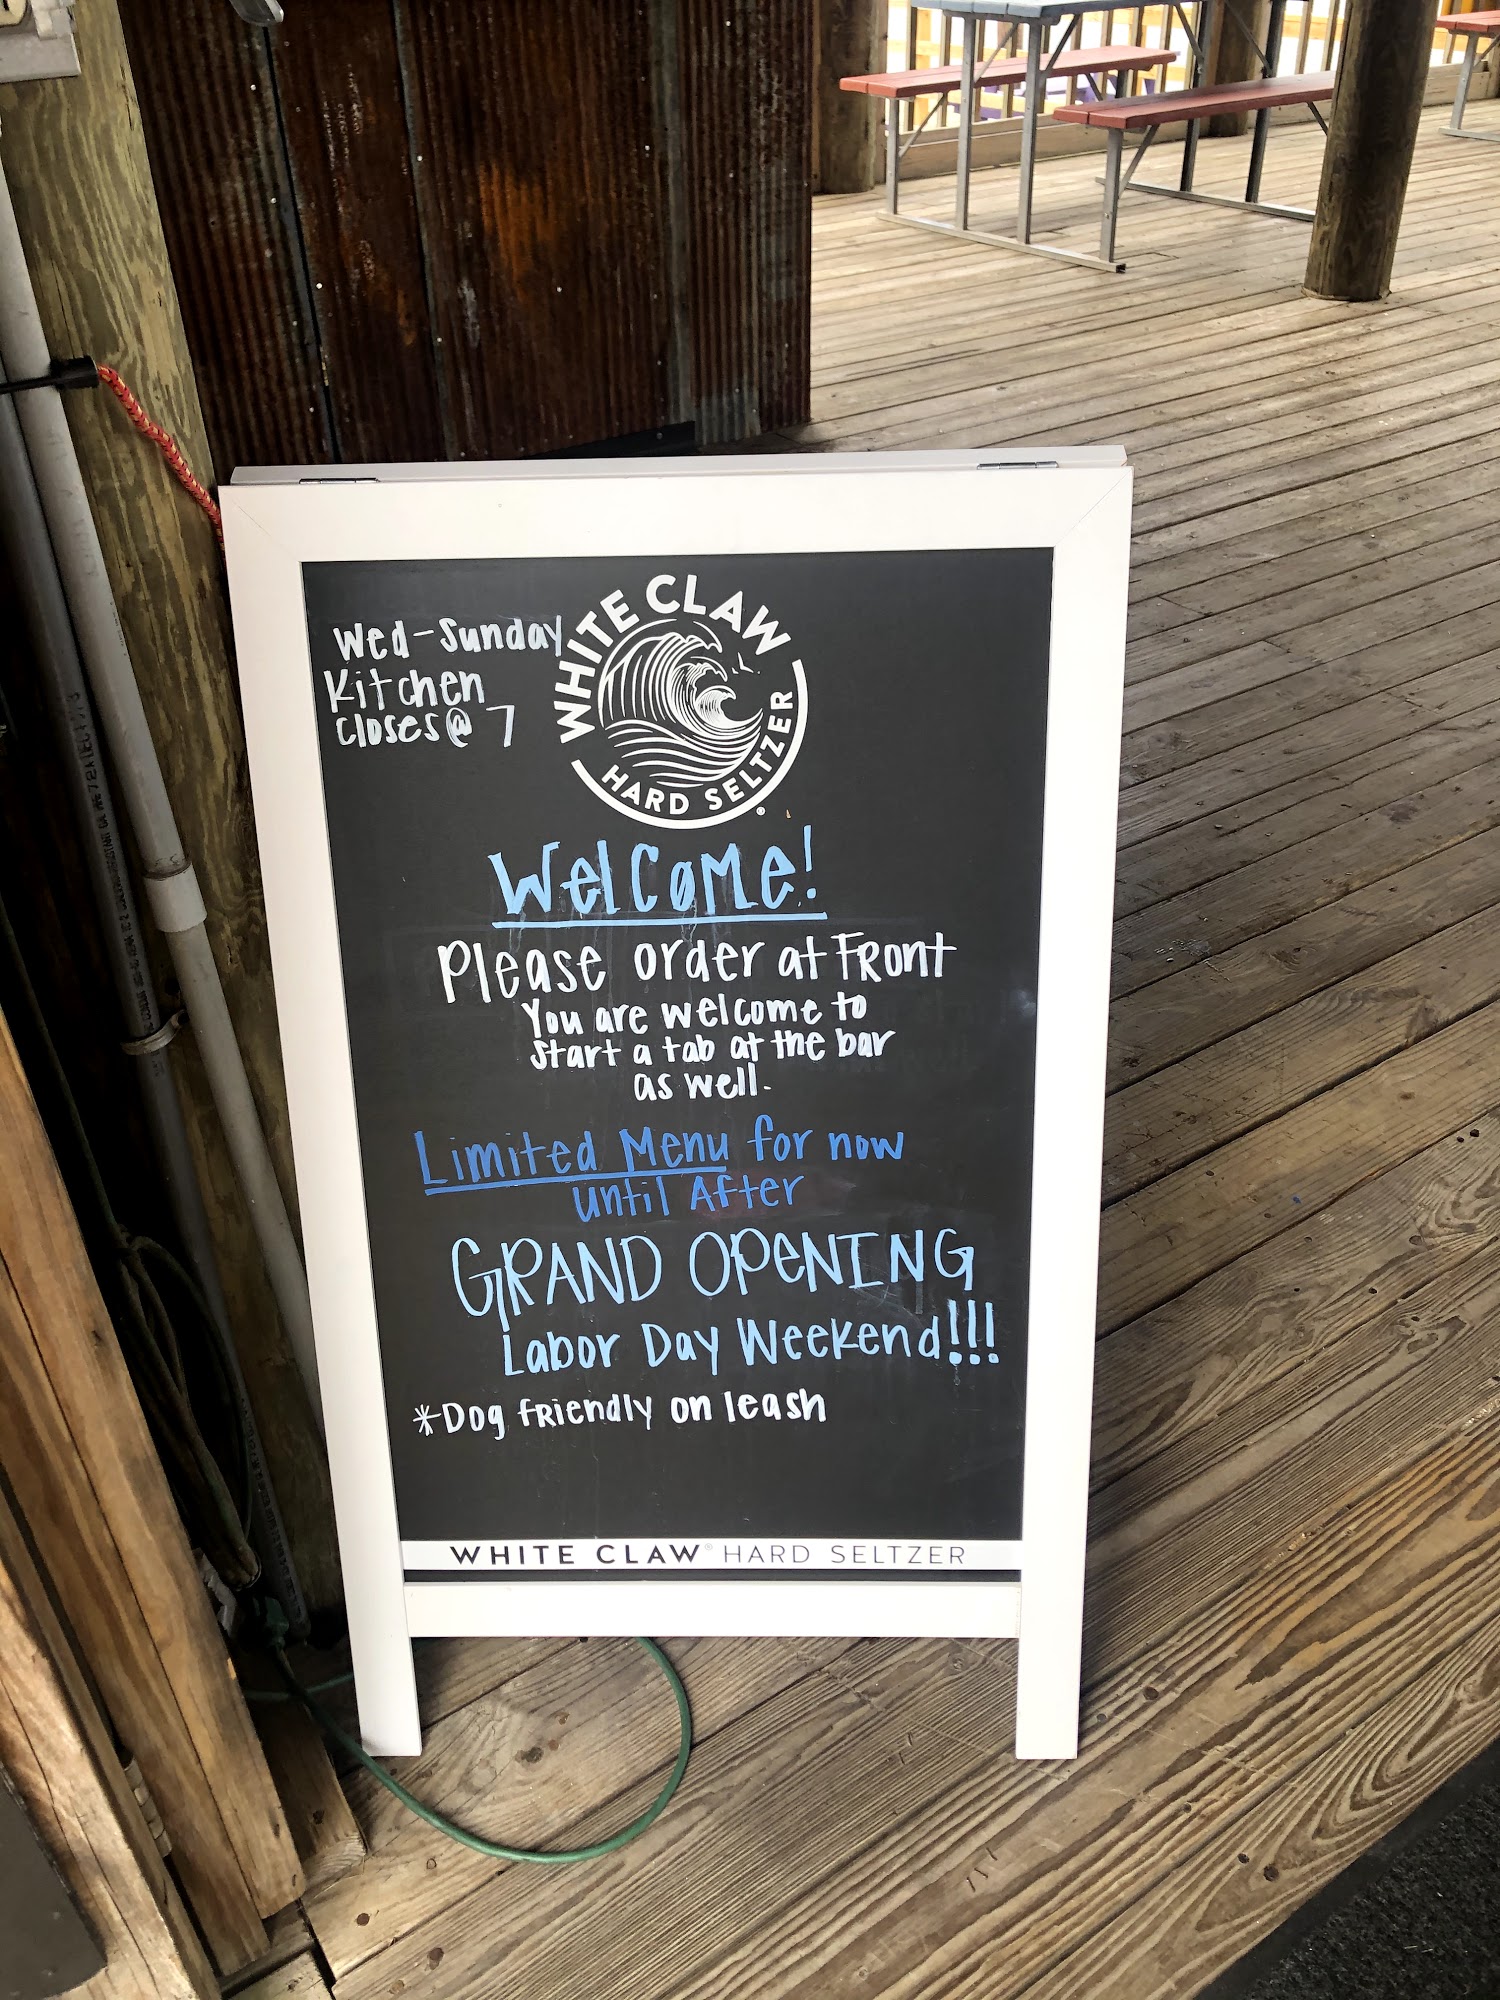 Wed-Sunday
Kitchen
closes@ 7
WHITE CLAW
HARD SELTZER®
Welcome!
Please order at Front
You are welcome to
start a tab at the bar
as well.
Limited Menu for now
until After
GRAND OPENING
Labor Day Weekend!!!
*Dog friendly on leash
WHITE CLAW® HARD SELTZER